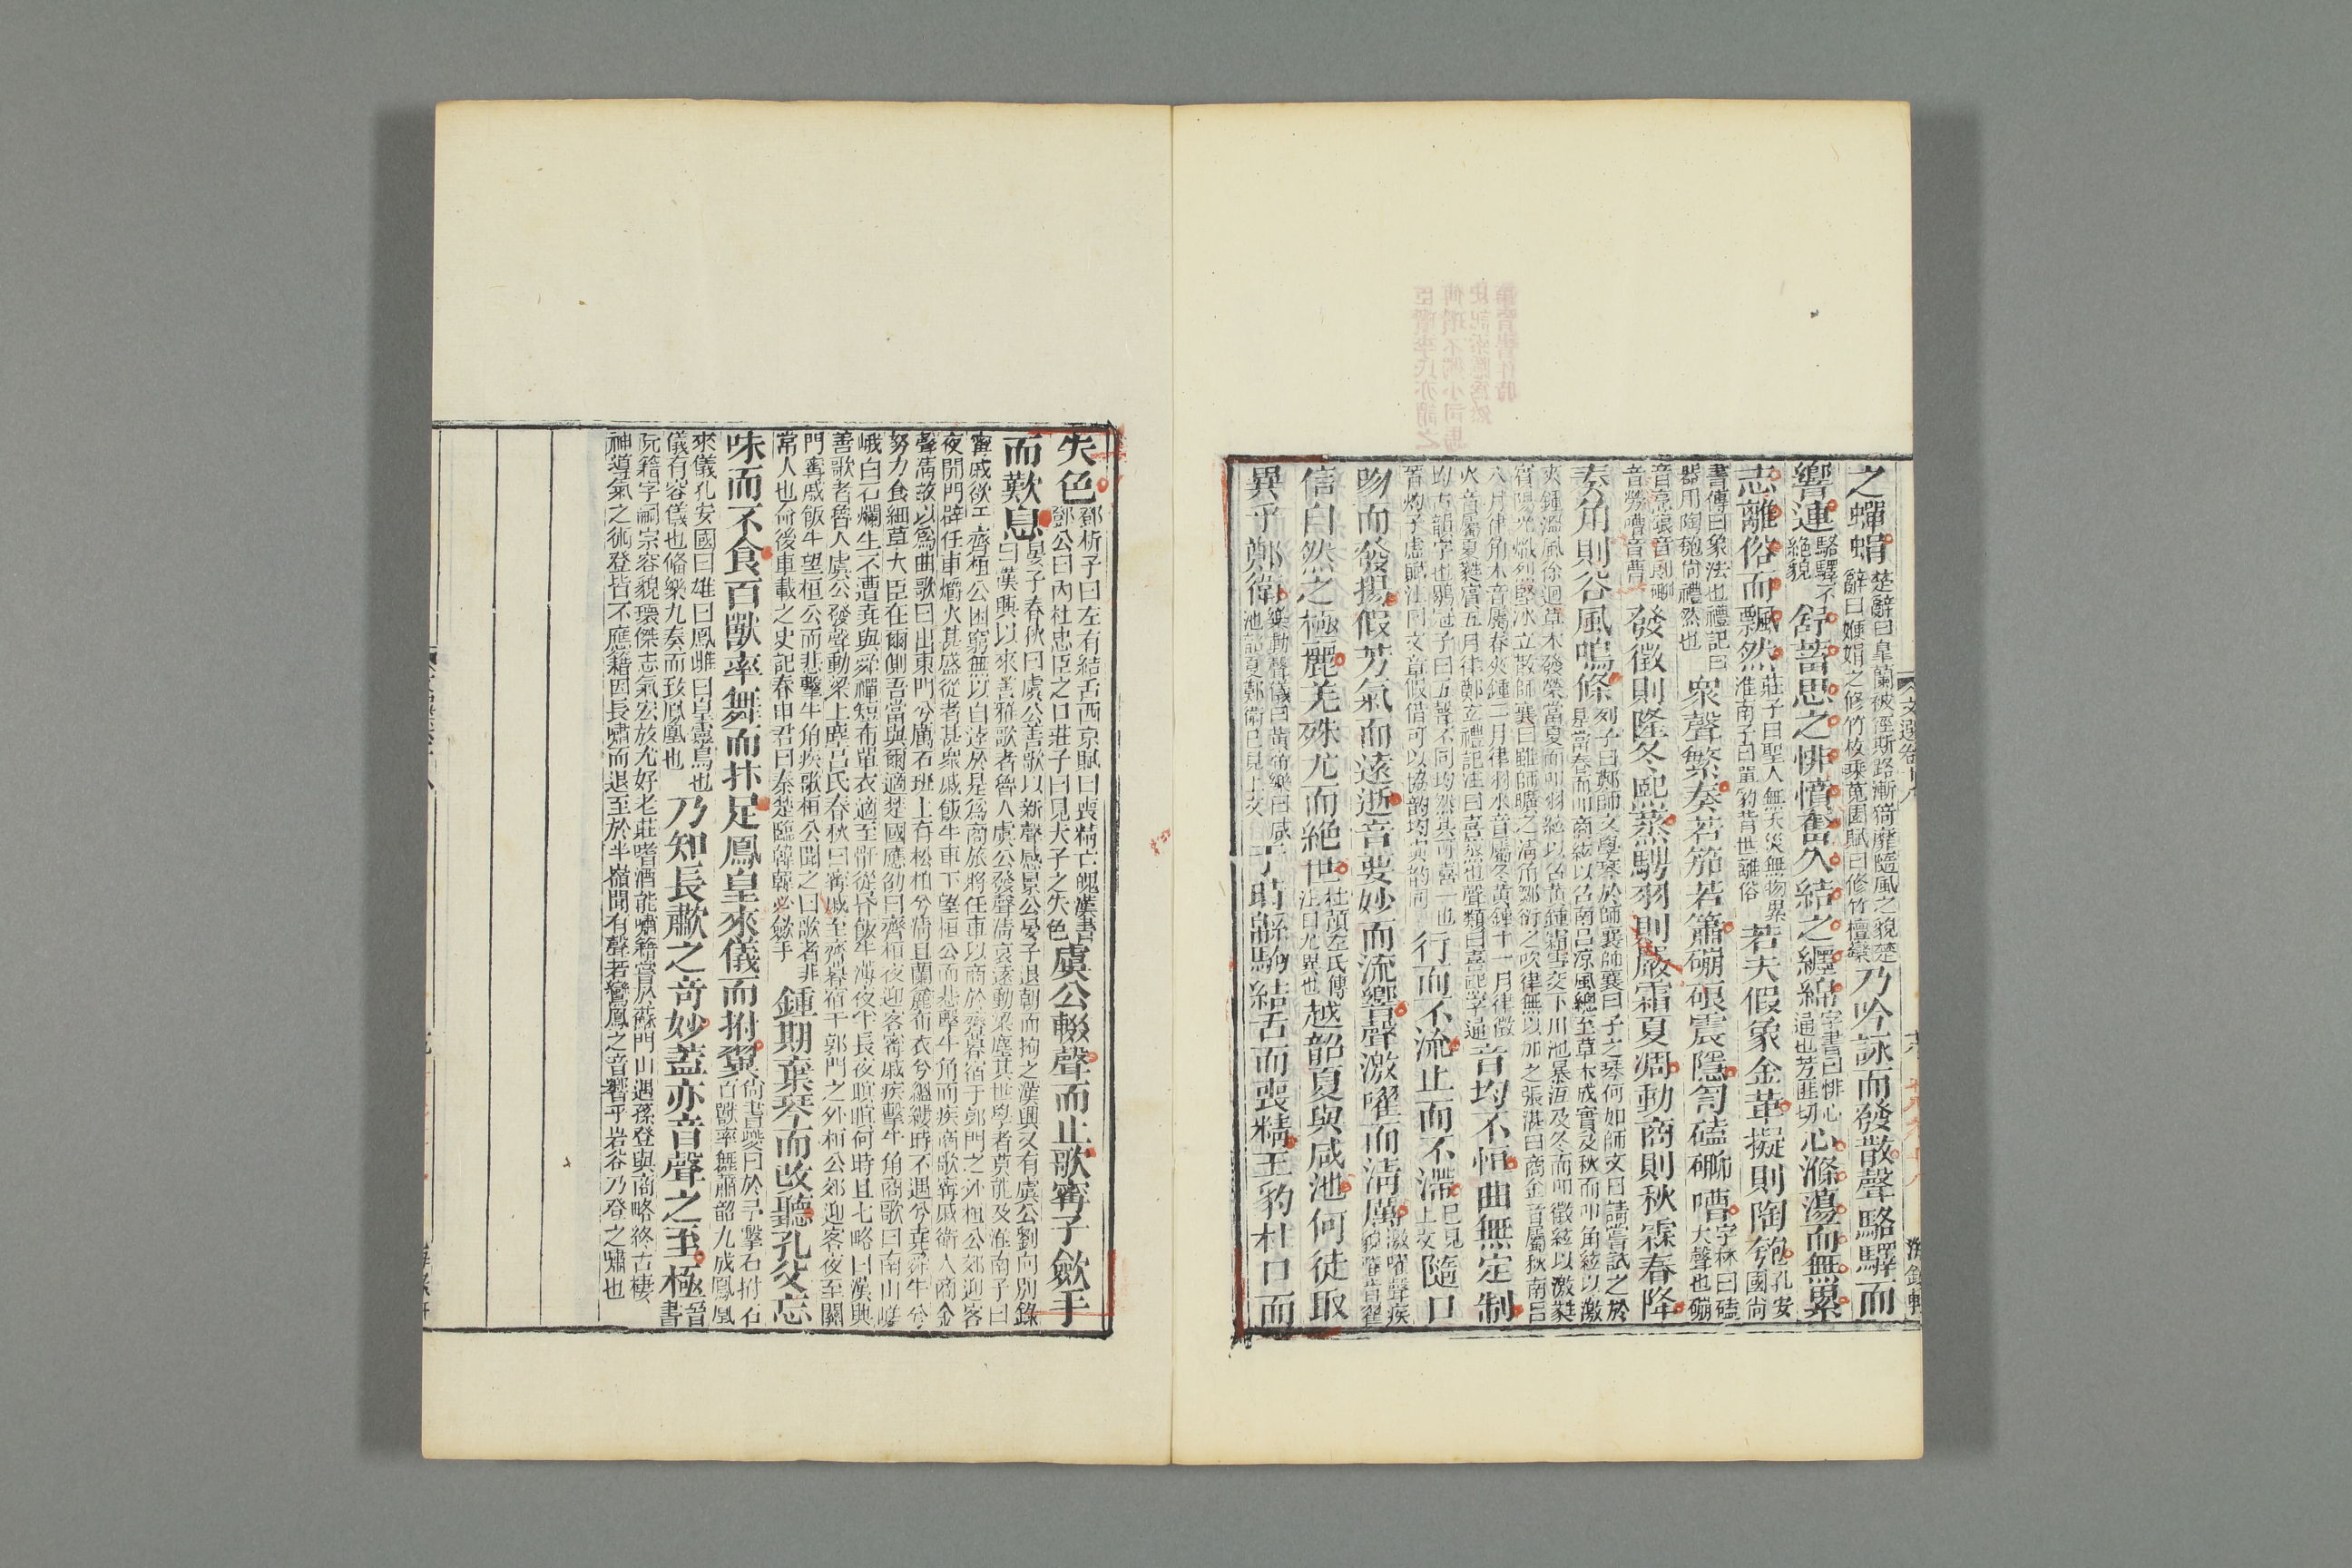 之蟬蜎楚辭曰皐蘭被徑斯路漸猗靡隨風之貌楚辭曰㛹娟之修竹枚乘菟園賦曰修竹檀欒乃吟詠而發散聲駱驛而
響連駱驛不絕貌舒蓄思之悱憤奮久結之纏綿字書曰悱心誦也芳匪切心滌蕩而無累
志離俗而飄然莊子曰聖人無天災無物累淮南子曰單豹背世離俗若夫假象金革擬則陶匏孔安國尚
書傳曰象法也禮記曰器用陶匏尚禮然也衆聲繁奏若笳若簫磞硠震隱訇磕㗿嘈字林曰磕大聲也磞
音烹硠音郎㗿音勞嘈音曹發徵則隆冬熙蒸騁羽則嚴霜夏凋動商則秋霖春降
奏角則谷風鳴條列子曰鄭師文學琴於師襄師襄曰子之琴何如師文曰請嘗試之於是當春而叩商絃以召南呂涼風總至草木成實及秋而叩角絃以激
夾鍾溫風徐迴草木發榮當夏而叩羽絃以召黃鍾霜雪交下川池暴沍及冬而叩徵絃以激蕤賓陽光熾烈堅冰立散師襄曰雖師曠之清角鄒衍之吹律無以加之張湛曰商金音屬秋南呂
八月律角木音屬春夾鍾二月律羽水音屬冬黃鍾十一月律徵火音屬夏蕤賓五月律鄭立禮記注曰熹蒸也聲類曰熹熙字通音均不恒曲無定制
均古韻字也鶡冠子曰五聲不同均然其可喜一也晉灼子虛賦注曰文章假借可以協韵均與韵同行而不流止而不滯已見上文隨口
吻而發揚假芳氣而遠逝音要妙而流響聲激嚁而淸厲激嚁聲疾貌嚁音翟
信自然之極麗羌殊尤而絕世杜預左氏傳注曰尤異也越韶夏與咸池何徒取
異乎鄭衛樂動聲儀曰黃帝樂曰咸池韶夏鄭衛已見上文于時緜駒結舌而喪精王豹杜口而
失色鄧析子曰左右結舌西京賦曰喪精亡魄漢書鄧公曰內杜忠臣之口莊子曰見夫子之失色虞公輟聲而止歌甯子斂手
而歎息晏子春秋曰虞公善歌以新聲感景公晏子退朝而拘之漢興又有虞公劉向別錄曰漢興以來善雅歌者魯人虞公發聲淸哀遠動梁塵其世學者莫能及淮南子曰
甯戚欲干齊桓公困窮無以自達於是爲商旅將任車以商於齊暮宿于郭門之外桓公郊迎客夜開門辟任車爝火甚盛從者甚衆戚飯牛車下望桓公而悲擊牛角而疾商歌甯戚衛人商金
聲淸故以爲曲歌曰出東門兮厲石班上有松柏兮淸且蘭麤布衣兮縕縷時不遇兮堯舜牛兮努力食細草大臣在爾側吾當與爾適楚國應劭曰齊桓夜迎客甯戚疾擊牛角商歌曰南山嵯
峨白石爛生不遭堯與舜禪短布單衣適至骭從昏飯牛薄夜半長夜暝暝何時旦七略曰漢興善歌者魯人虞公發聲動梁上塵呂氏春秋曰甯戚至齊暮宿于郭門之外桓公郊迎客夜至關
門甯戚飯牛望桓公而悲擊牛角疾歌桓公聞之曰歌者非常人也命後車載之史記春申君曰秦楚臨韓韓必斂手鍾期棄琴而改聽孔父忘
味而不食百獸率舞而抃足鳳皇來儀而拊翼尚書夔曰於予擊石拊石百獸率舞簫韶九成鳳凰
來儀孔安國曰雄曰鳳雌曰皇靈鳥也儀有容儀也偹樂九奏而致鳳凰也乃知長歗之奇妙蓋亦音聲之至極晉書
阮籍字嗣宗容貌瓌傑志氣宏放尤好老莊嗜酒能嘯籍嘗於蘇門山遇孫登與商略終古棲神導氣之術登皆不應籍因長嘯而退至於半嶺聞有聲若鸞鳳之音響乎岩谷乃登之嘯也